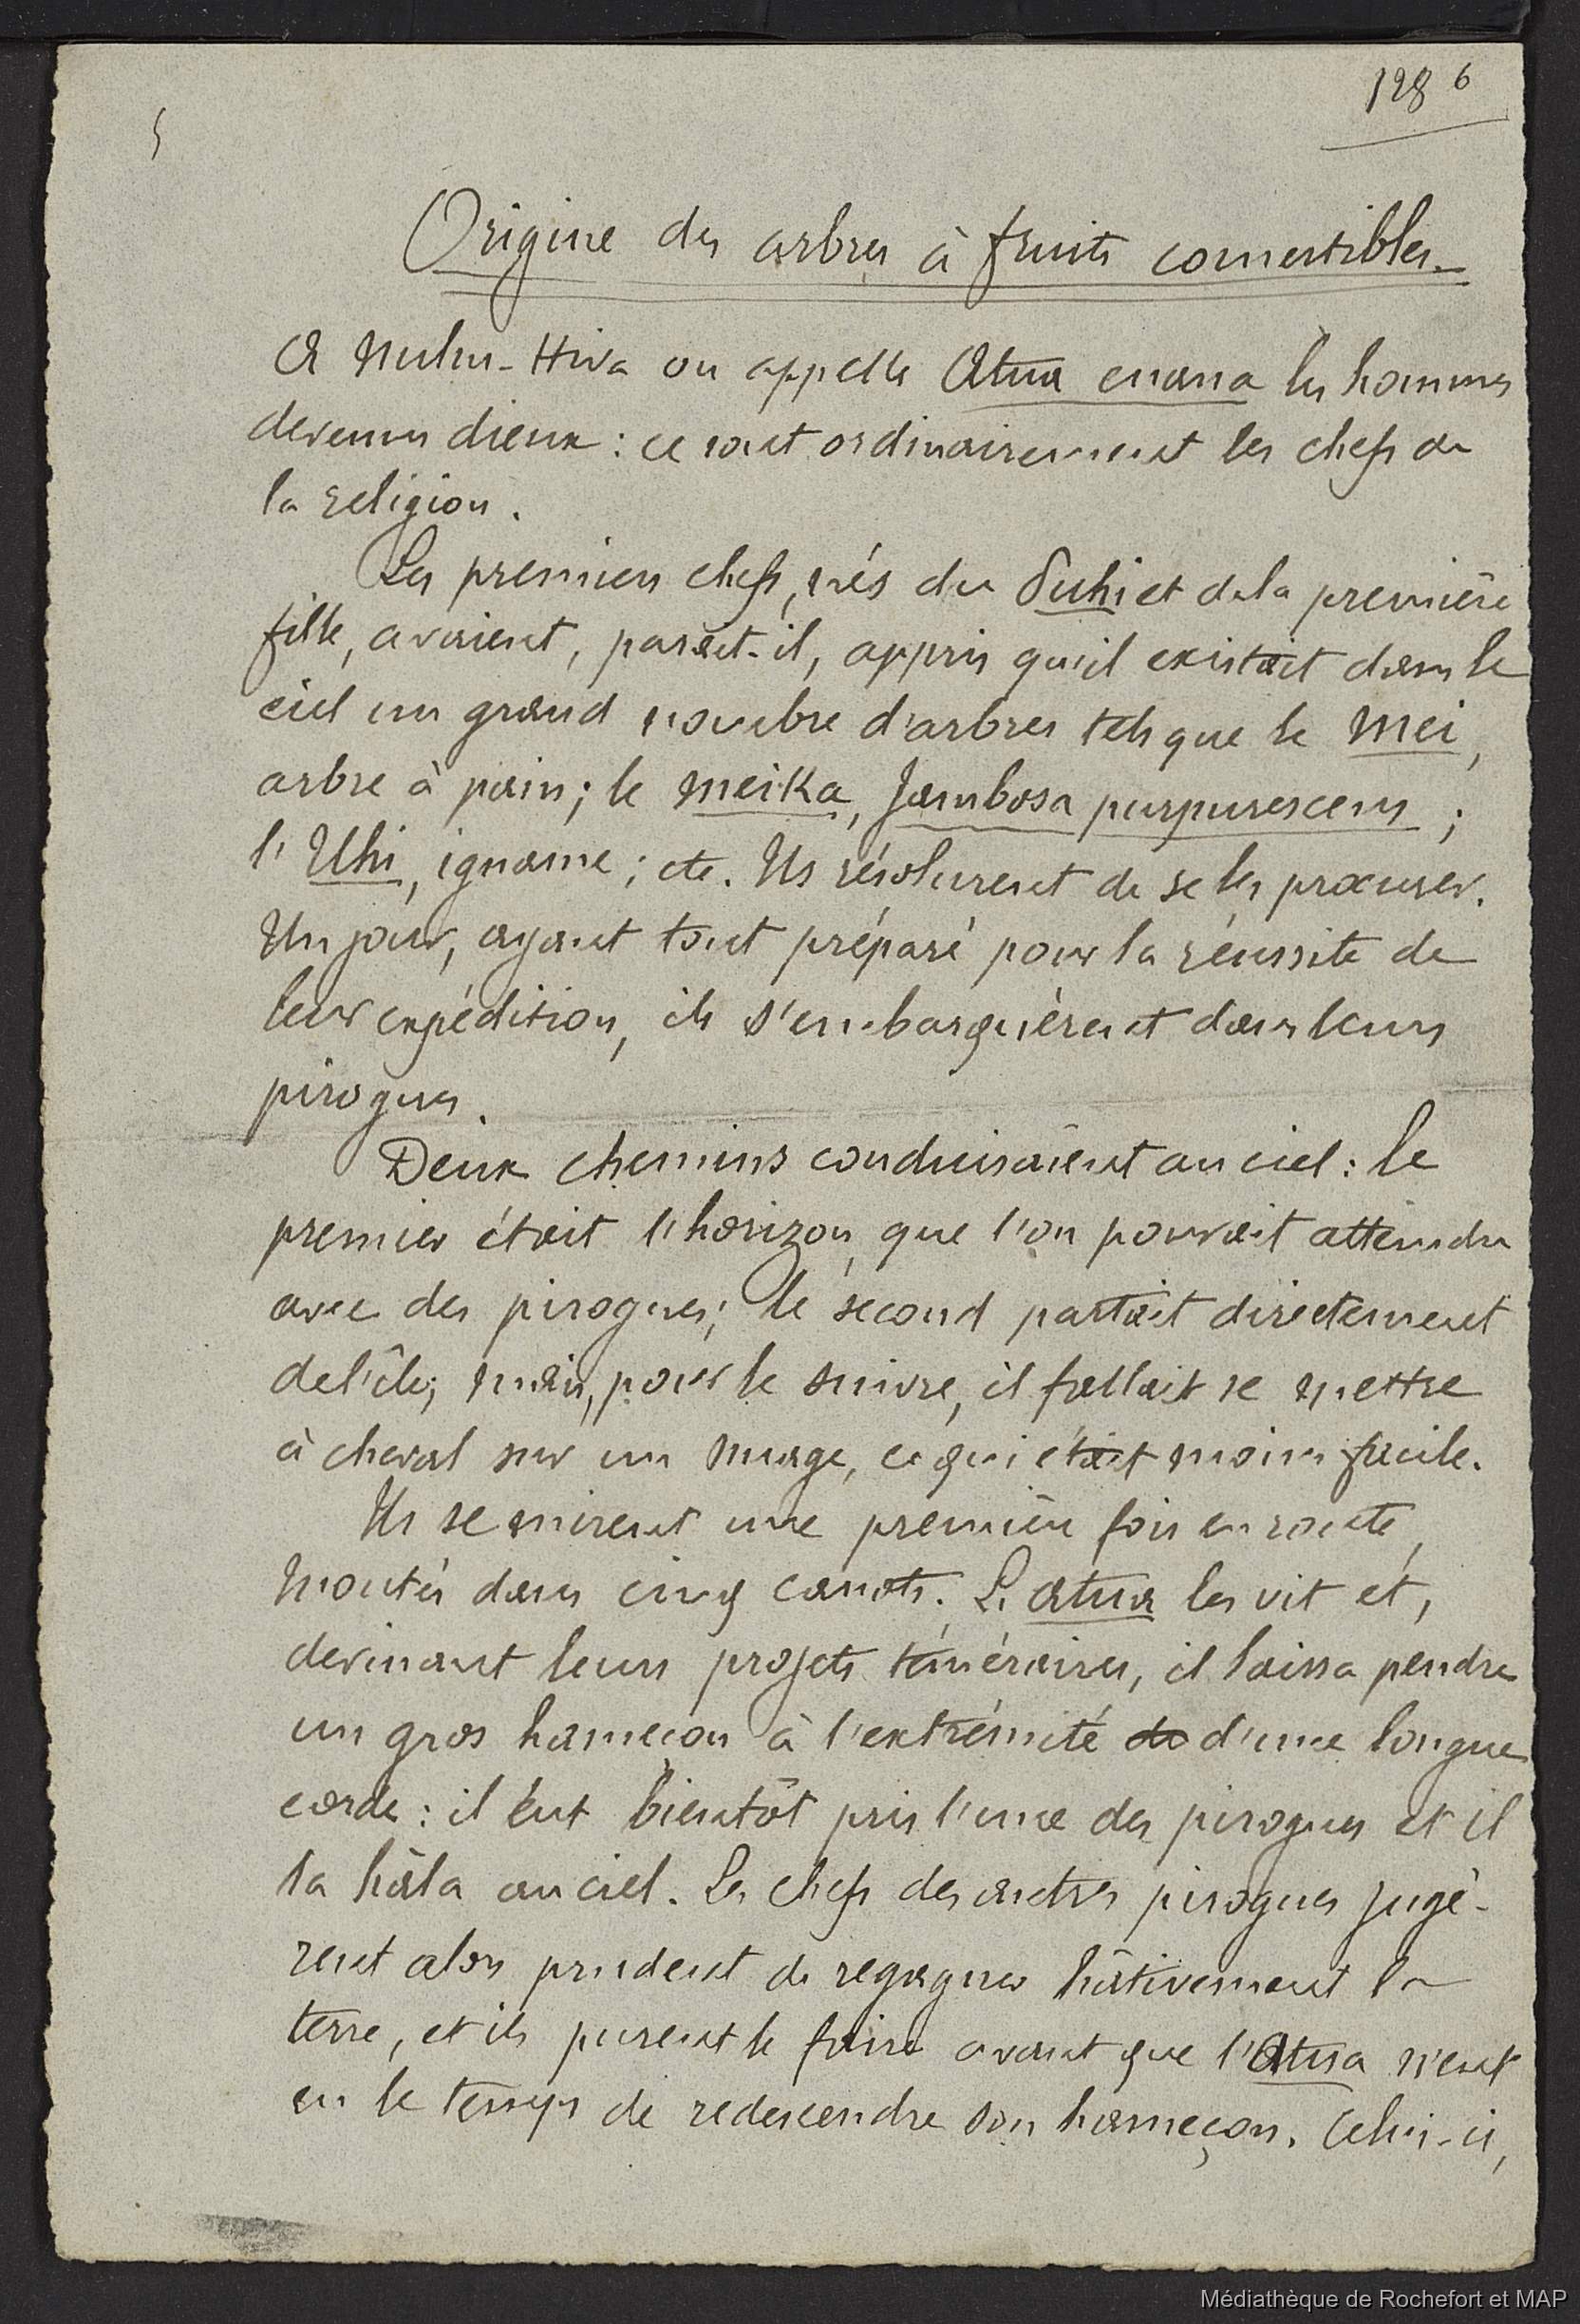 128 6
5
Origine des arbres à fruits comestibles.
A Nuku-Hiva on appelle Atua enana les hommes
devenus dieux : ce sont ordinairement les chefs de
la religion.
Les premiers chefs, nés du Tuhi et de la première
fille, avaient, paraît-il, appris qu'il existait dans le
ciel un grand nombre d'arbres tels que le Mei,
arbre à pain ; le meika, Jambosa purpurescens ;
l'Uhi, igname ; etc. Ils résolurent de se les procurer.
Un jour, ayant tout préparé pour la réussite de
leur expédition, ils s'embarquèrent dans leurs
pirogues.
Deux chemins conduisaient au ciel : le
premier était l'horizon, que l'on pouvait atteindre
avec des pirogues ; le second partait directement
de l'île ; mais, pour le suivre, il fallait se mettre
à cheval sur un nuage, ce qui était moins facile.
Ils se mirent une première fois en route,
montés dans cinq canots. L'atua les vit et,
devinant leurs projets téméraires, il laissa pendre
un gros hameçon à l'extrémité de d'une longue
corde : il eut bientôt pris l'une des pirogues et il
la hâla au ciel. Les chefs des autres pirogues jugè-
rent alors prudent de regagner hâtivement la
terre, et ils purent le faire avant que l'Atua n'eut
eu le temps de redescendre son hameçon. Celui-ci,
Médiathèque de Rochefort et MAP